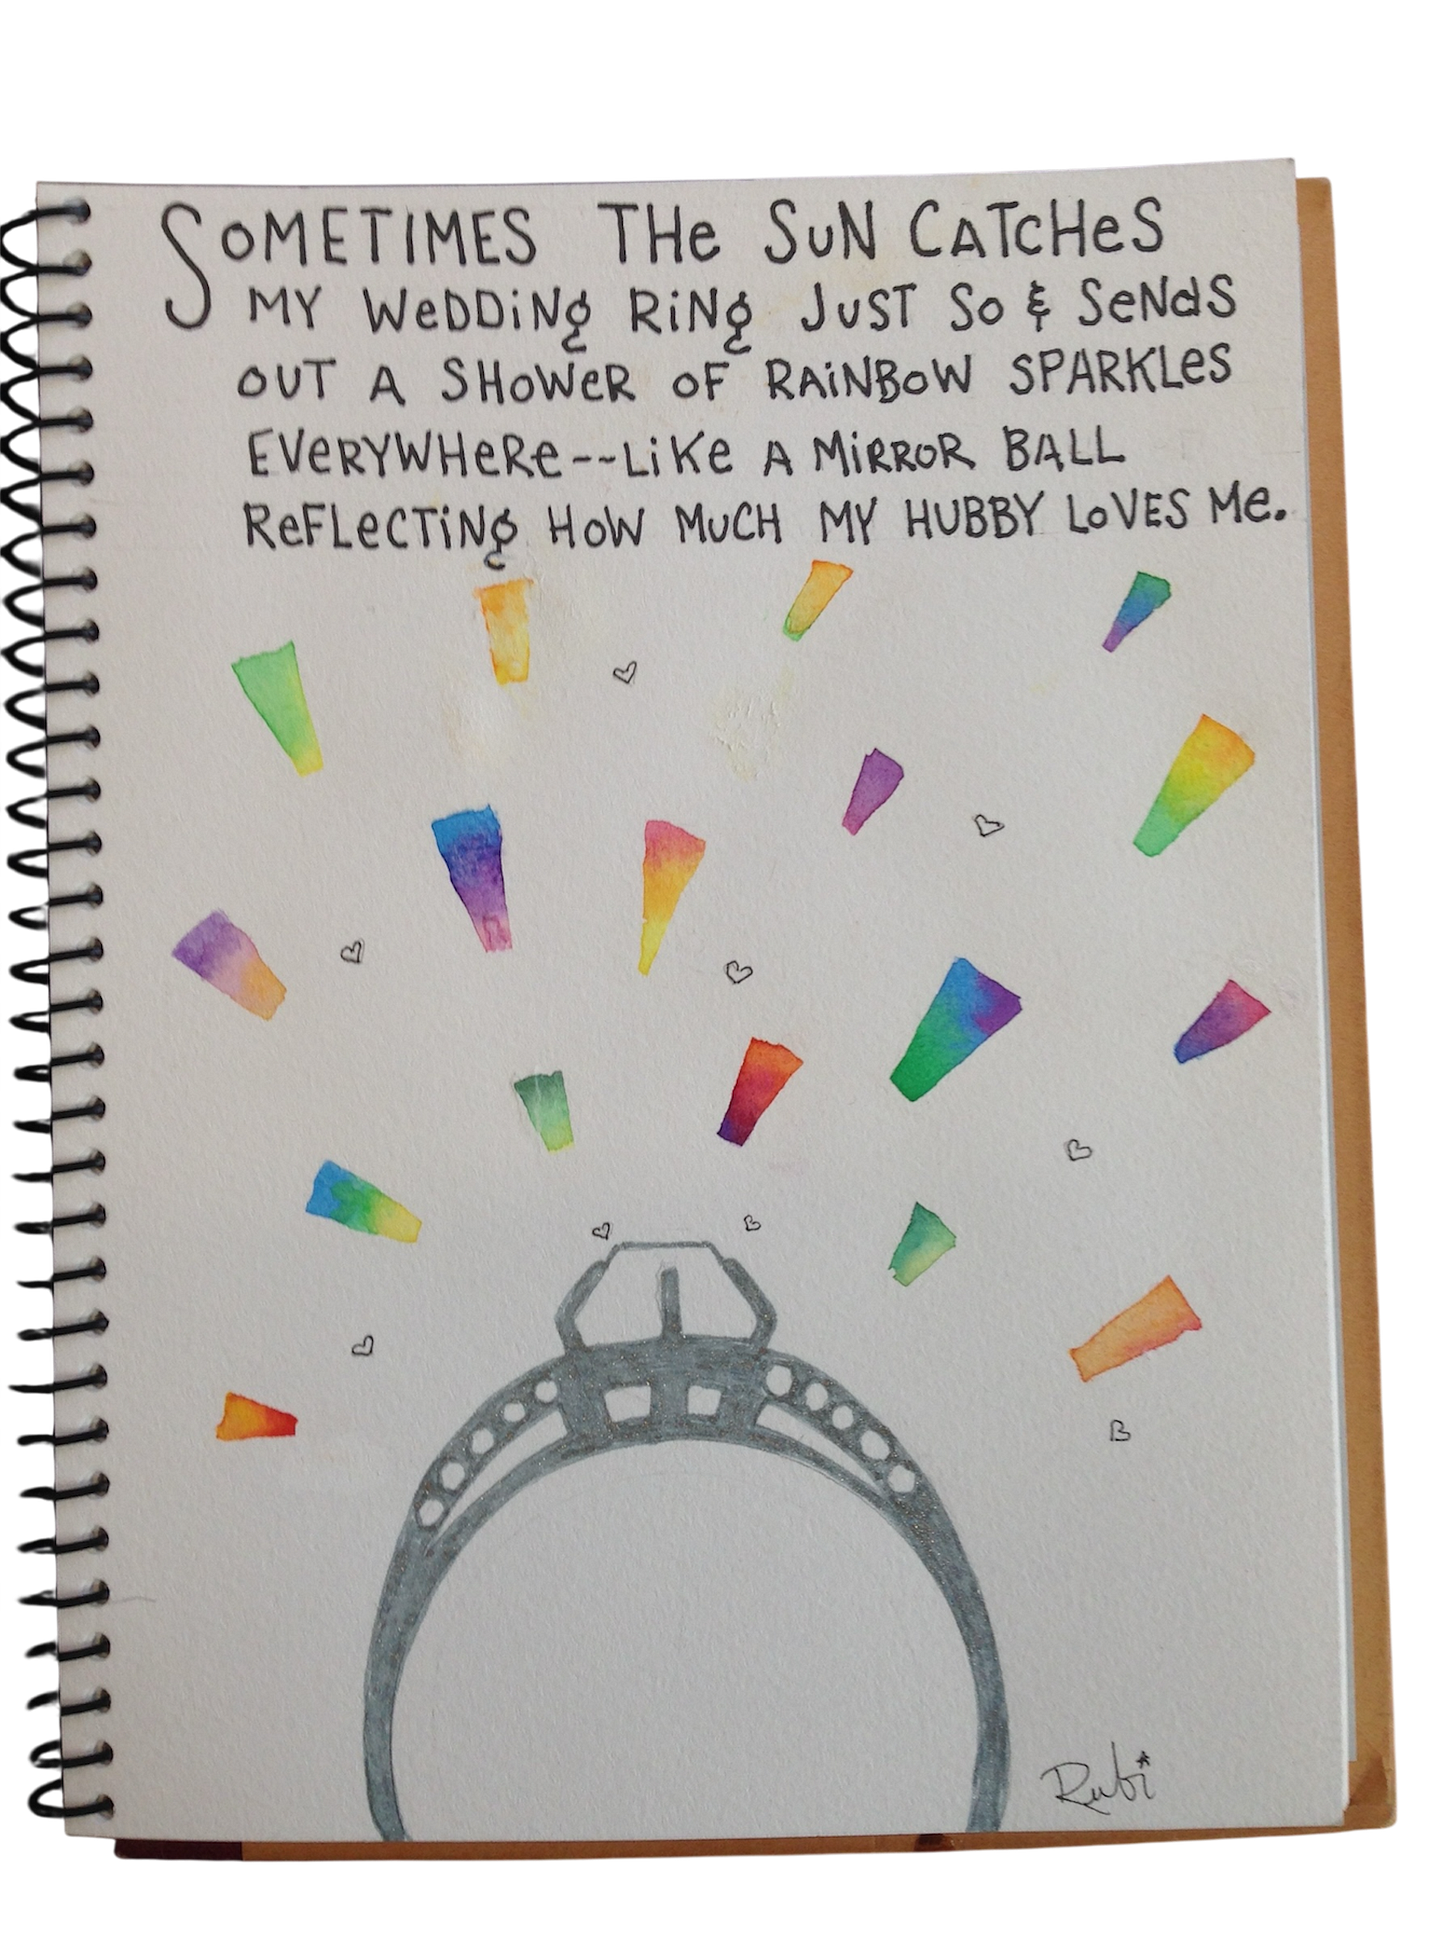 SOMETIMES THe SuN CATcHeS
MY WeDDiNg RiNg JuST So & SeNdS
OUT A SHoWeR OF RAiNBoW SPARKLeS
EVeRYWHeRe--LiKe A MiRROR BALL
ReFLeCTiNg HoW MuCH MY HUBBY LoVES Me.
Rubi